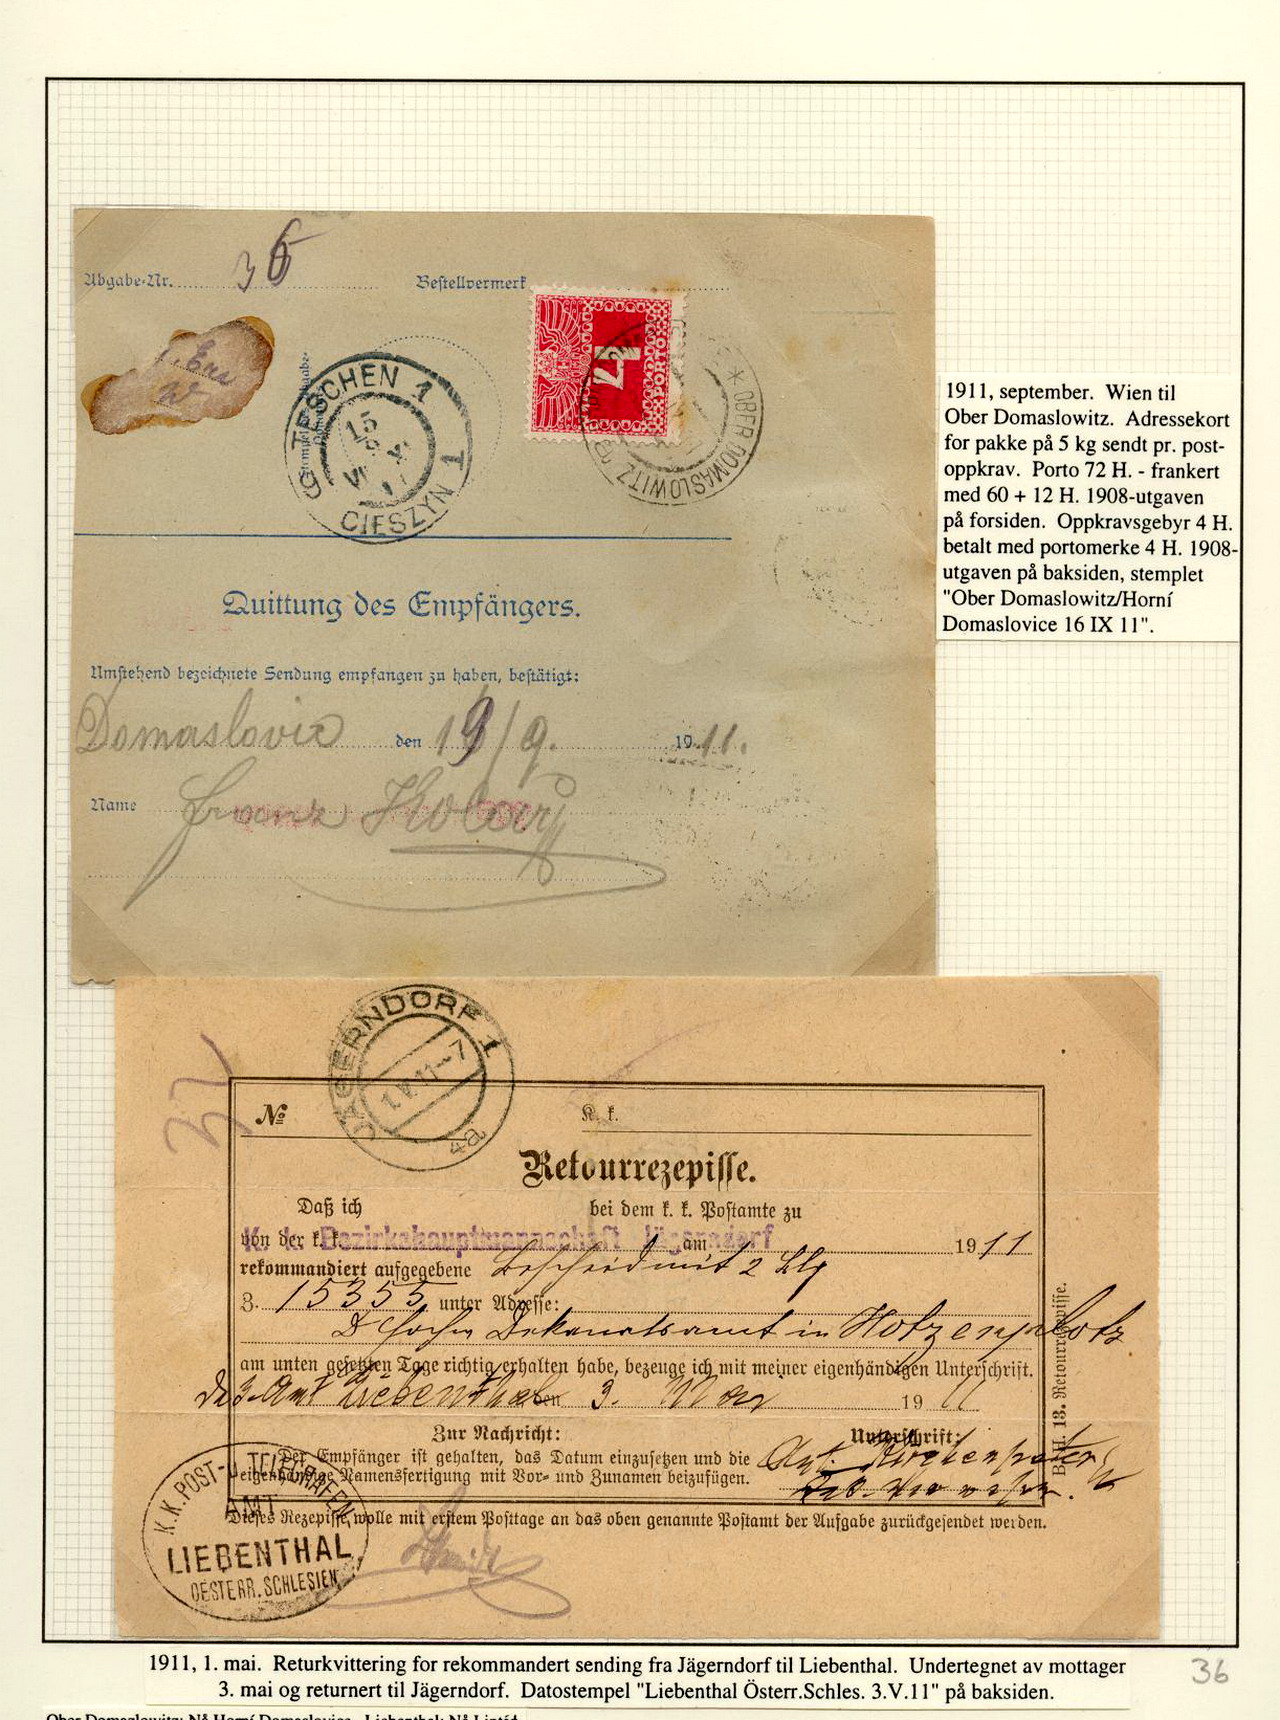 Abgabe-Nr. 36
Bestellvermerk
4
PORTO
TESCHEN 1
CIESZYN
15
* OBER DOMASLOWITZ
1911, september. Wien til
Ober Domaslowitz. Adressekort
for pakke på 5 kg sendt pr. post-
oppkrav. Porto 72 H. - frankert
med 60 + 12 H. 1908-utgaven
på forsiden. Oppkravsgebyr 4 H.
betalt med portomerke 4 H. 1908-
utgaven på baksiden, stemplet
"Ober Domaslowitz/Horní
Domaslovice 16 IX 11".
Quittung des Empfängers.
Umstehend bezeichnete Sendung empfangen zu haben, bestätigt:
Domaslovic den 19/9. 1911.
Name Franz
JÄGERNDORF 1
1.V.11-7
4a
32
№
K. k.
Retourrezepisse.
Daß ich bei dem k. k. Postamte zu
K. k. Bezirkshauptmannschaft Jägerndorf
von der k. k. am 1911
rekommandiert aufgegebene Bescheid mit 2
3. 15355 unter Adresse:
Dekanatsamt in Hotzenplotz
am unten gesetzten Tage richtig erhalten habe, bezeuge ich mit meiner eigenhändigen Unterschrift.
Liebenthal den 3. Mai 1911
Zur Nachricht: Unterschrift:
Der Empfänger ist gehalten, das Datum einzusetzen und die
eigenhändige Namensfertigung mit Vor- und Zunamen beizufügen.
Dieses Rezepisse wolle mit erstem Posttage an das oben genannte Postamt der Aufgabe zurückgesendet werden.
13. Retourrezepisse.
K.K. POST- U. TELEGRAFEN
AMT
LIEBENTHAL
OESTERR. SCHLESIEN
1911, 1. mai. Returkvittering for rekommandert sending fra Jägerndorf til Liebenthal. Undertegnet av mottager
3. mai og returnert til Jägerndorf. Datostempel "Liebenthal Österr.Schles. 3.V.11" på baksiden.
36